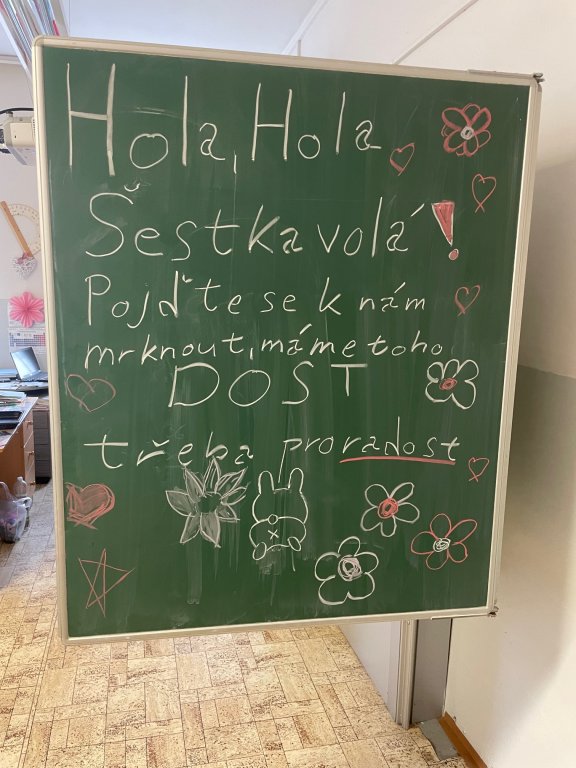 Hola, Hola
Šestka volá!
Pojďte se k nám
mrknout, máme toho
DOST
třeba pro radost